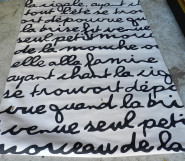 la cigale, ayant
tout l'été se trouv
dépourvue qu
la bise fut venue
seul petit mor
de la mouche o
elle alla famine
ayant chant la cig
se trouvait dépo
vue quand la bris
venue seul peti
morceau de la